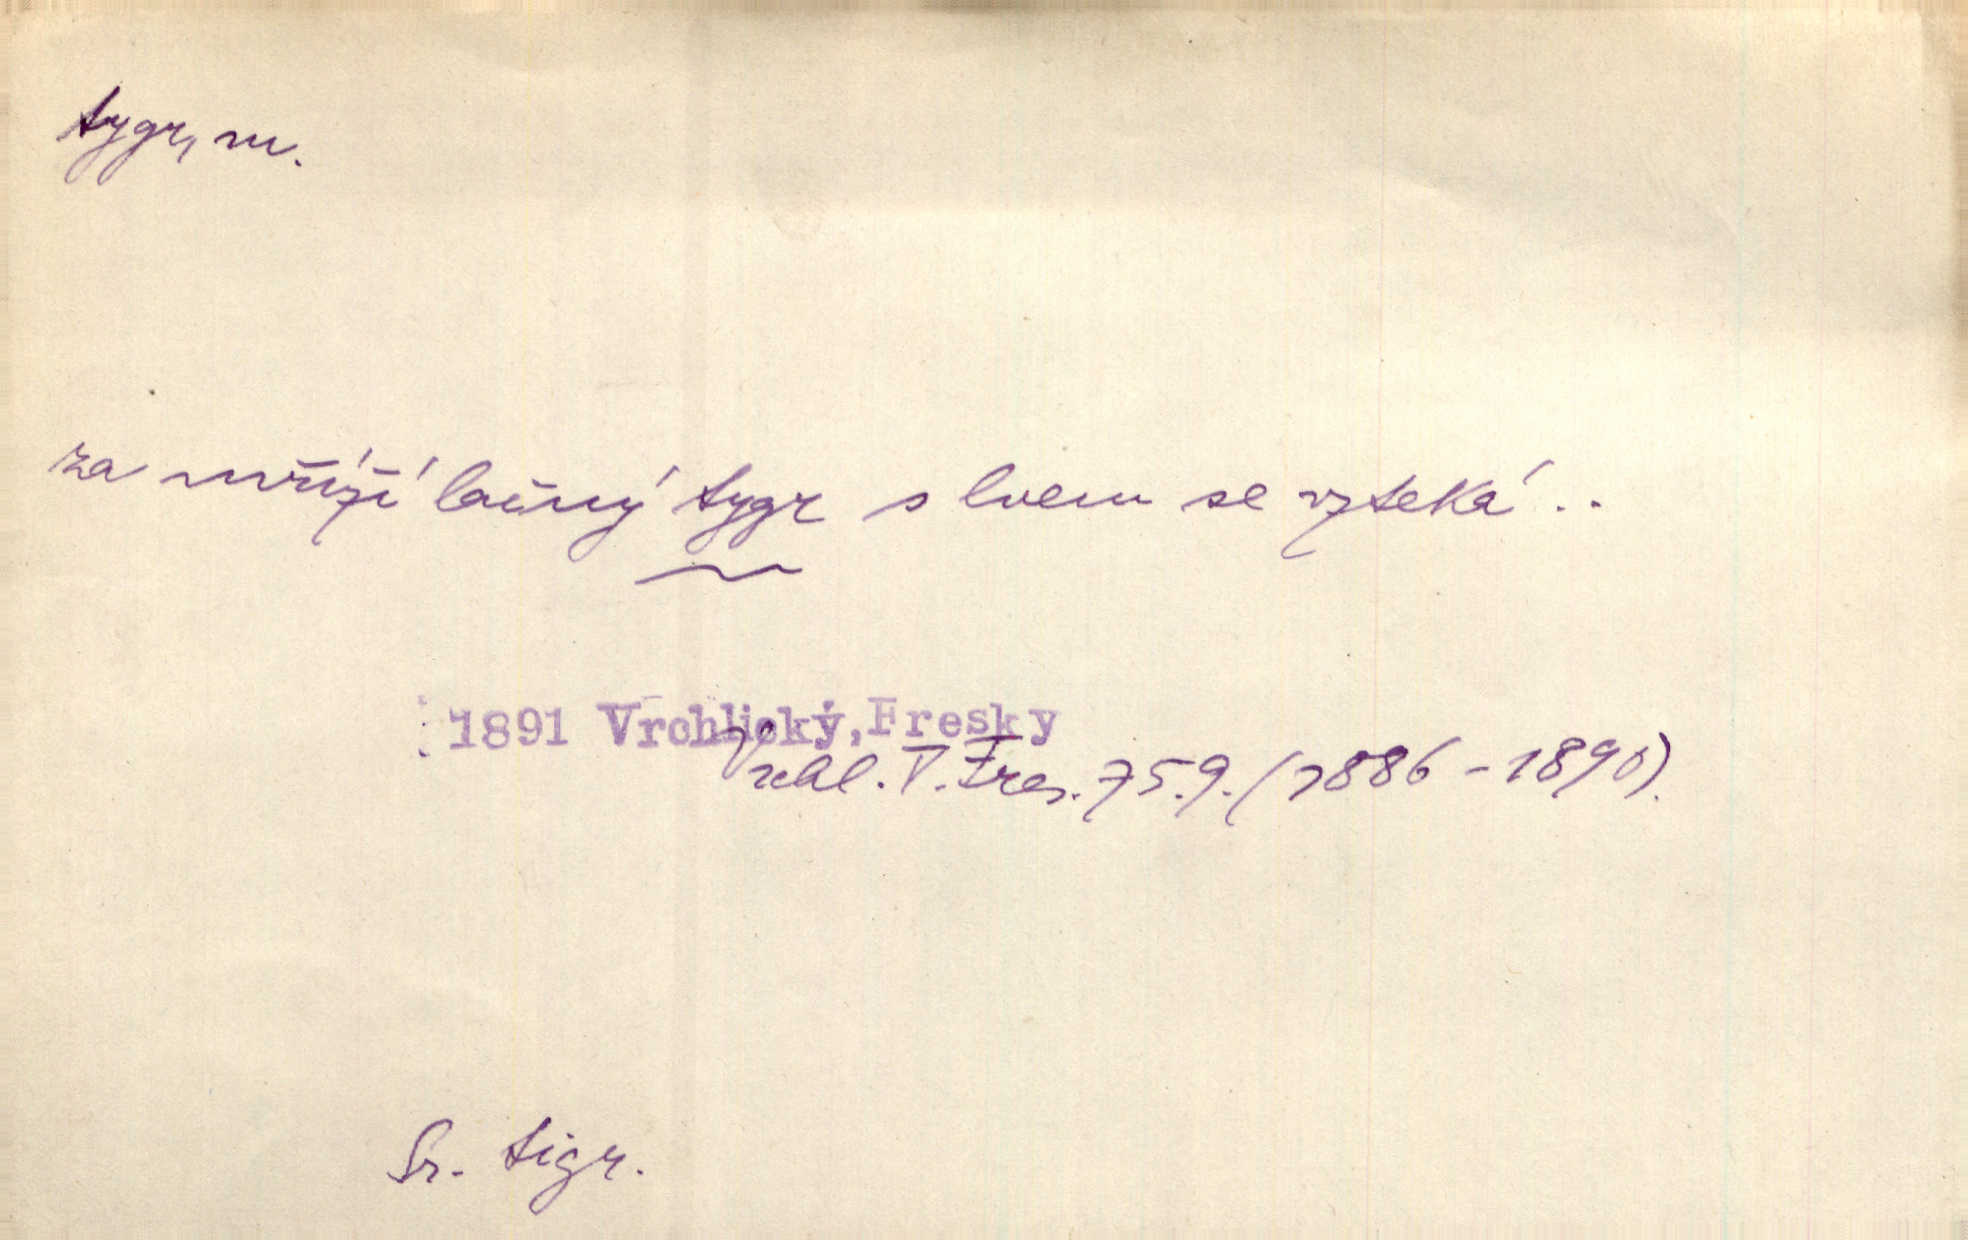 tygr, m.
za mříží lačný tygr s lvem se vzteká..
1891 Vrchlický, Fresky
Vrchl. V. Fres. 759. (1886-1890).
Sr. tigr.